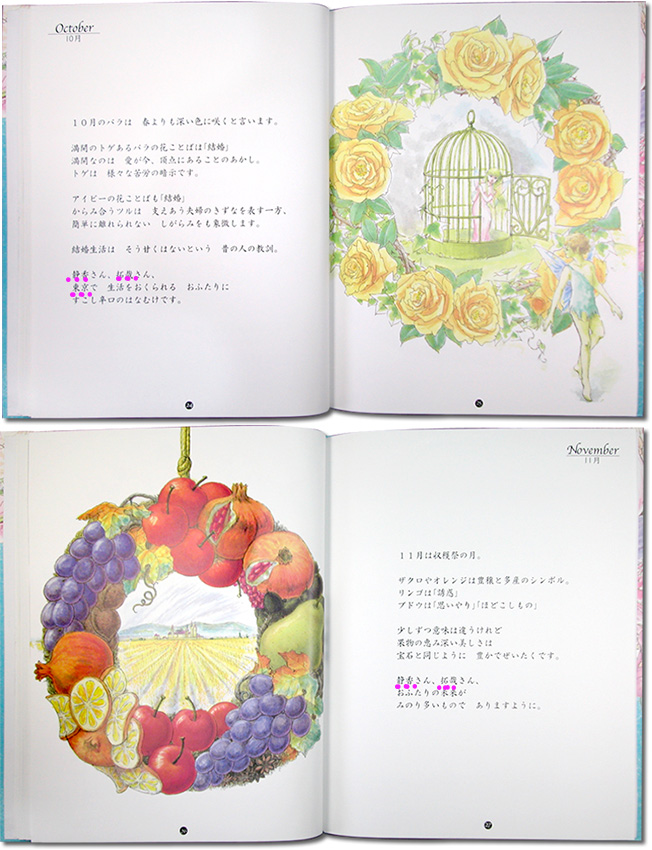 October
10月
10月のバラは　春よりも深い色に咲くと言います。
満開のトゲあるバラの花ことばは「結婚」
満開なのは　愛が今、頂点にあることのあかし。
トゲは　様々な苦労の暗示です。
アイビーの花ことばも「結婚」
からみ合うツルは　支えあう夫婦のきずなを表す一方、
簡単に離れられない　しがらみをも象徴します。
結婚生活は　そう甘くはないという　昔の人の教訓。
静香さん、拓哉さん、
東京で　生活をおくられる　おふたりに
すこし辛口のはなむけです。
24
25
November
11月
11月は収穫祭の月。
ザクロやオレンジは豊穣と多産のシンボル。
リンゴは「誘惑」
ブドウは「思いやり」「ほどこしもの」
少しずつ意味は違うけれど
果物の恵み深い美しさは
宝石と同じように　豊かでぜいたくです。
静香さん、拓哉さん、
おふたりの未来が
みのり多いもので　ありますように。
26
27